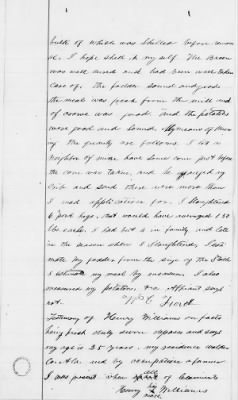 bulk of which was shelled before remov
al. I helped shell it my self. The Bacon
was well cured and had been well taken
care of. the fodder sound and good
the meal was fresh from the mill and
of course was good. and the potatoes
were good and sound. My means of know
ing the quantity are as follows. I let a
neighbor of mine have some corn just before
the corn was taken, and he
crib and said there were more than
I had application for. I slaughtered
6 pork hogs, that would have averaged 150
lbs each. I had but a in family and late
in the season when I slaughtered, I esti
mate my fodder from the size of the stack
I estimate my meal by measure. I also
measured my potatoes, &c Affiant says
not.
Wm C Fiord
Testimony of Henry Williams on facts
being first duly sworn deposes and says
my age is 25 years. my residence Walker
Co. Ala. and by occupation a farmer
I was present when all of Claimants
Henry his Williams
mark